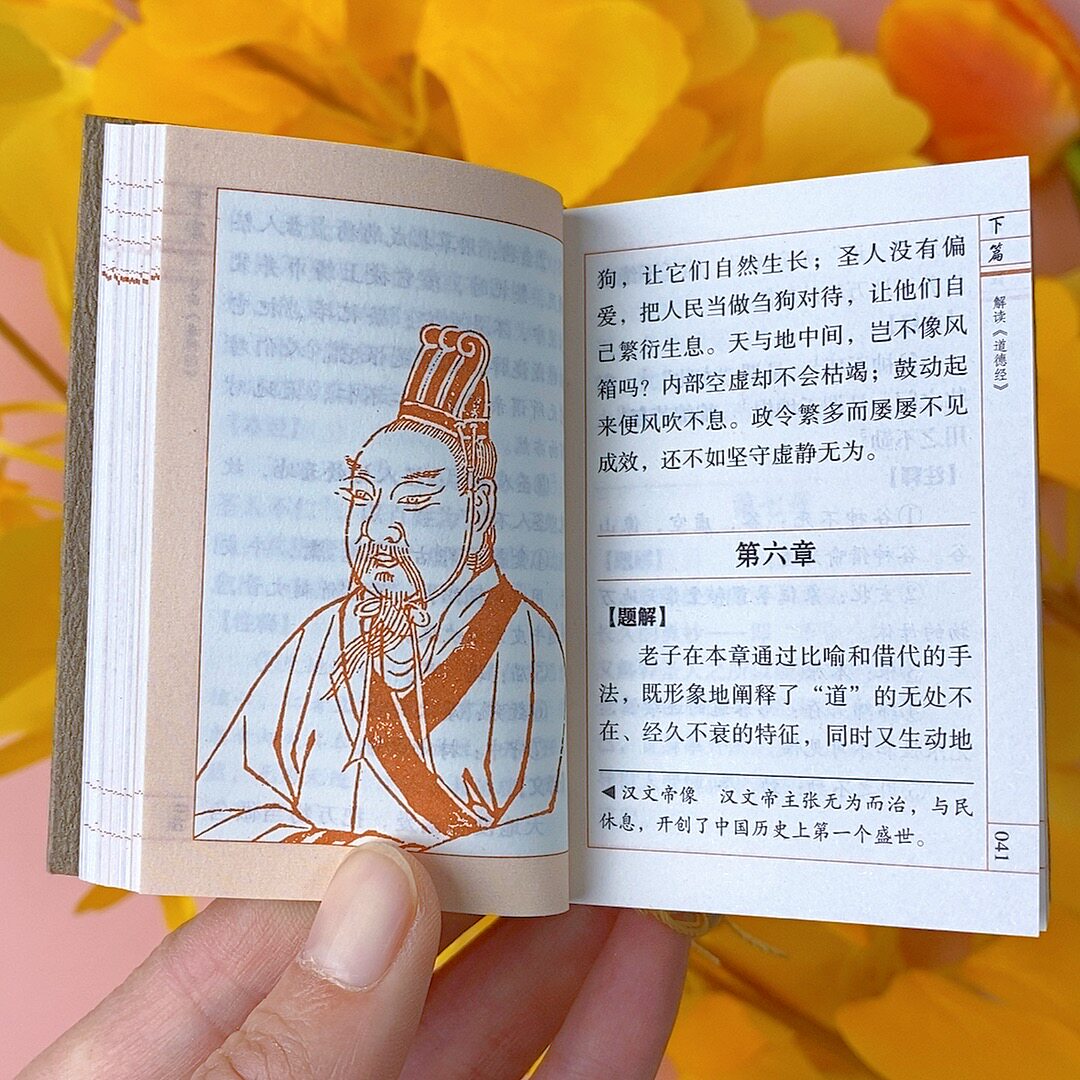 狗，让它们自然生长；圣人没有偏
爱，把人民当做刍狗对待，让他们自
己繁衍生息。天与地中间，岂不像风
箱吗？内部空虚却不会枯竭；鼓动起
来便风吹不息。政令繁多而屡屡不见
成效，还不如坚守虚静无为。
第六章
【题解】
老子在本章通过比喻和借代的手
法，既形象地阐释了“道”的无处不
在、经久不衰的特征，同时又生动地
◀汉文帝像　汉文帝主张无为而治，与民
休息，开创了中国历史上第一个盛世。
下篇
解读《道德经》
041